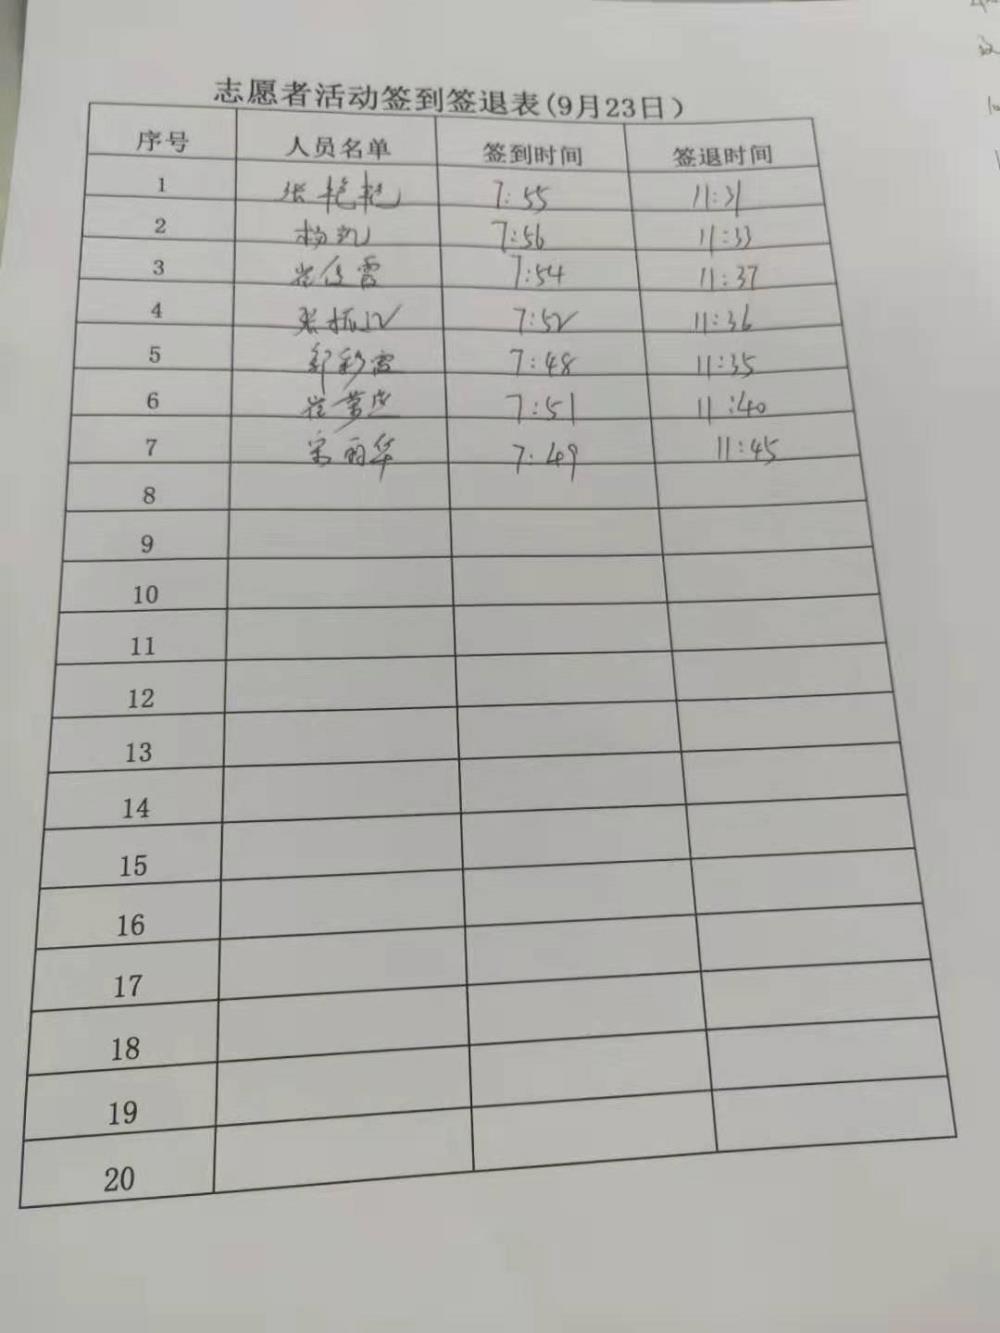 志愿者活动签到签退表(9月23日)
序号 人员名单 签到时间 签退时间
1 张艳艳 7:55 11:31
2 杨凯 7:56 11:33
3 崔俊霞 7:54 11:37
4 张振江 7:52 11:36
5 郭彩霞 7:48 11:35
6 崔 7:51 11:40
7 宋丽华 7:49 11:45
8
9
10
11
12
13
14
15
16
17
18
19
20